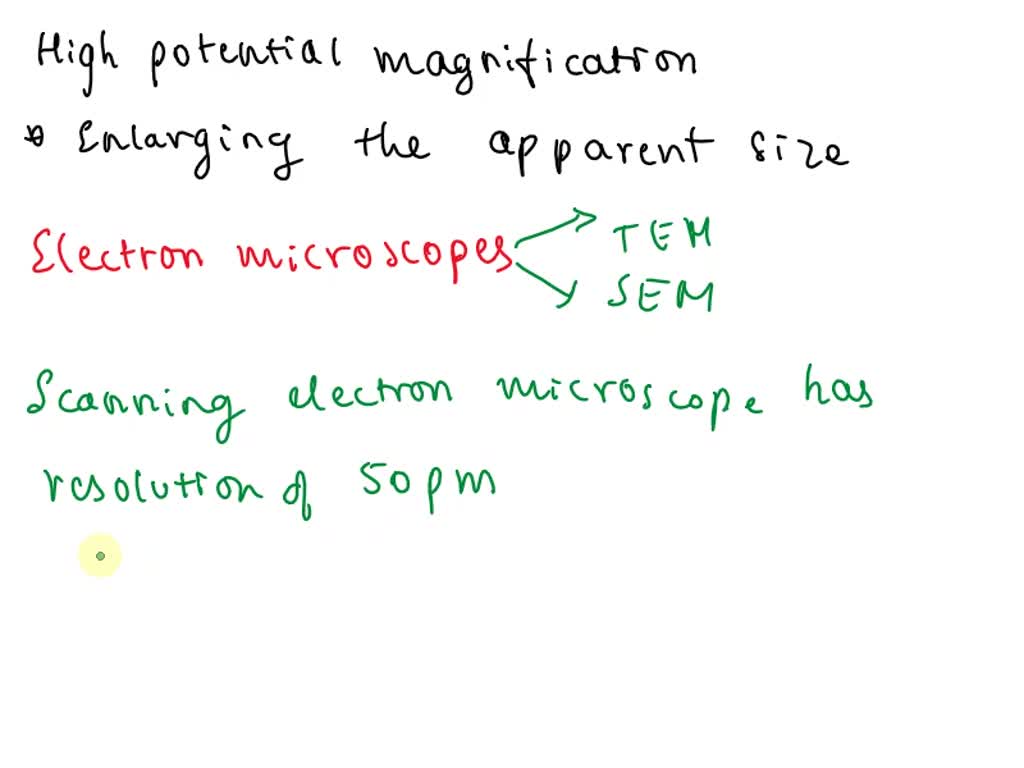 High potential magnification
* Enlarging the apparent size
Electron microscopes
TEM
SEM
Scanning electron microscope has
resolution of 50pm